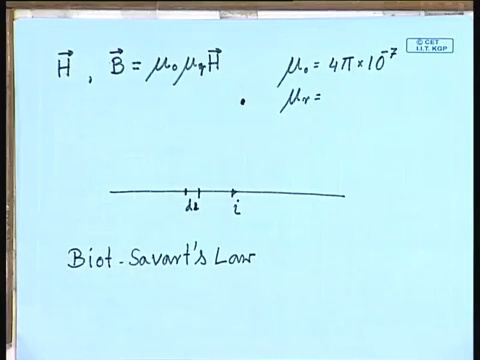 © CET
I.I.T. KGP
H⃗ , B⃗ = μ₀ μᵣ H⃗
μ₀ = 4π × 10⁻⁷
μᵣ =
dl i
Biot - Savart's Law